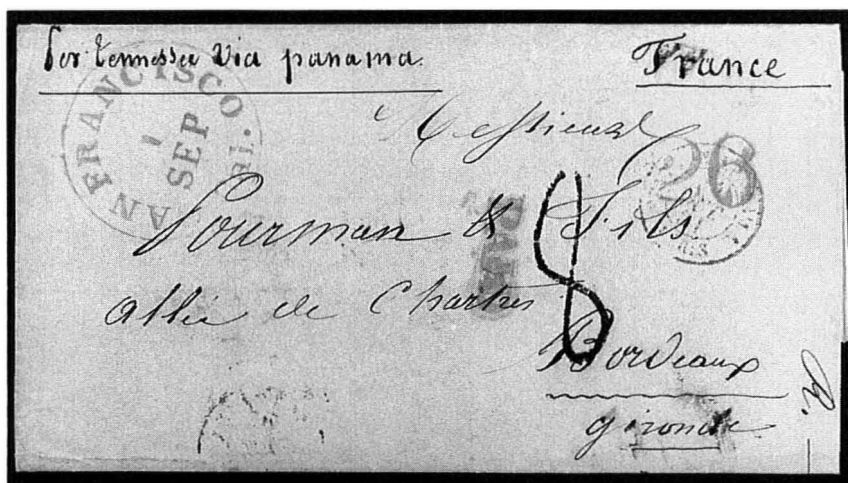 Per Tennessee Via panama.
France
SAN FRANCISCO Cal.
1
SEP
Messieurs
26
Fourman & Fils
PAID
8
allée de Chartres
Bordeaux
gironde